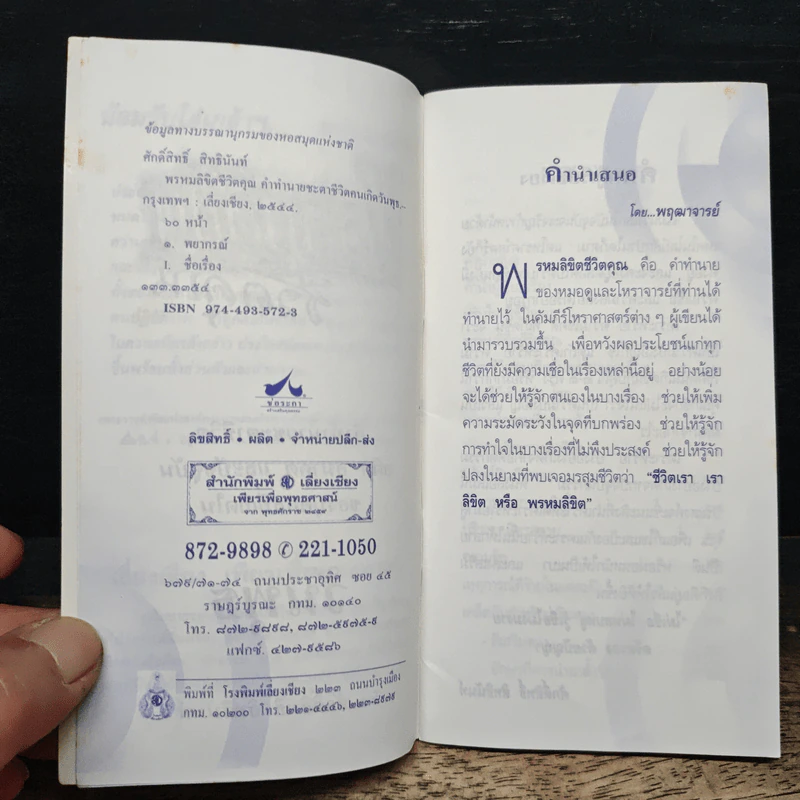 ข้อมูลทางบรรณานุกรมของหอสมุดแห่งชาติ
ศักดิ์สิทธิ์ สิทธินันท์
พรหมลิขิตชีวิตคุณ คำทำนายชะตาชีวิตคนเกิดวันพุธ.--
กรุงเทพฯ : เลี่ยงเชียง, ๒๕๔๔.
๖๐ หน้า
๑. พยากรณ์
I. ชื่อเรื่อง
๑๓๓.๓๓๕๔
ISBN 974-493-572-3
ช่อระกา
ลิขสิทธิ์ • ผลิต • จำหน่ายปลีก-ส่ง
สำนักพิมพ์ เลี่ยงเชียง
เพียรเพื่อพุทธศาสน์
จาก พุทธศักราช ๒๔๕๙
872-9898 ✆ 221-1050
๖๗๙/๗๑-๗๔ ถนนประชาอุทิศ ซอย ๔๕
ราษฎร์บูรณะ กทม. ๑๐๑๔๐
โทร. ๘๗๒-๙๘๙๘, ๘๗๒-๕๙๗๕-๙
แฟกซ์. ๔๒๗-๙๕๘๖
พิมพ์ที่ โรงพิมพ์เลี่ยงเชียง ๒๒๓ ถนนบำรุงเมือง
กทม. ๑๐๒๐๐ โทร. ๒๒๑-๔๔๔๖, ๒๒๓-๘๙๗๙
คำนำเสนอ
โดย...พฤฒาจารย์
พรหมลิขิตชีวิตคุณ คือ คำทำนาย
ของหมอดูและโหราจารย์ที่ท่านได้
ทำนายไว้ ในคัมภีร์โหราศาสตร์ต่าง ๆ ผู้เขียนได้
นำมารวบรวมขึ้น เพื่อหวังผลประโยชน์แก่ทุก
ชีวิตที่ยังมีความเชื่อในเรื่องเหล่านี้อยู่ อย่างน้อย
จะได้ช่วยให้รู้จักตนเองในบางเรื่อง ช่วยให้เพิ่ม
ความระมัดระวังในจุดที่บกพร่อง ช่วยให้รู้จัก
การทำใจในบางเรื่องที่ไม่พึงประสงค์ ช่วยให้รู้จัก
ปลงในยามที่พบเจอมรสุมชีวิตว่า "ชีวิตเรา เรา
ลิขิต หรือ พรหมลิขิต"